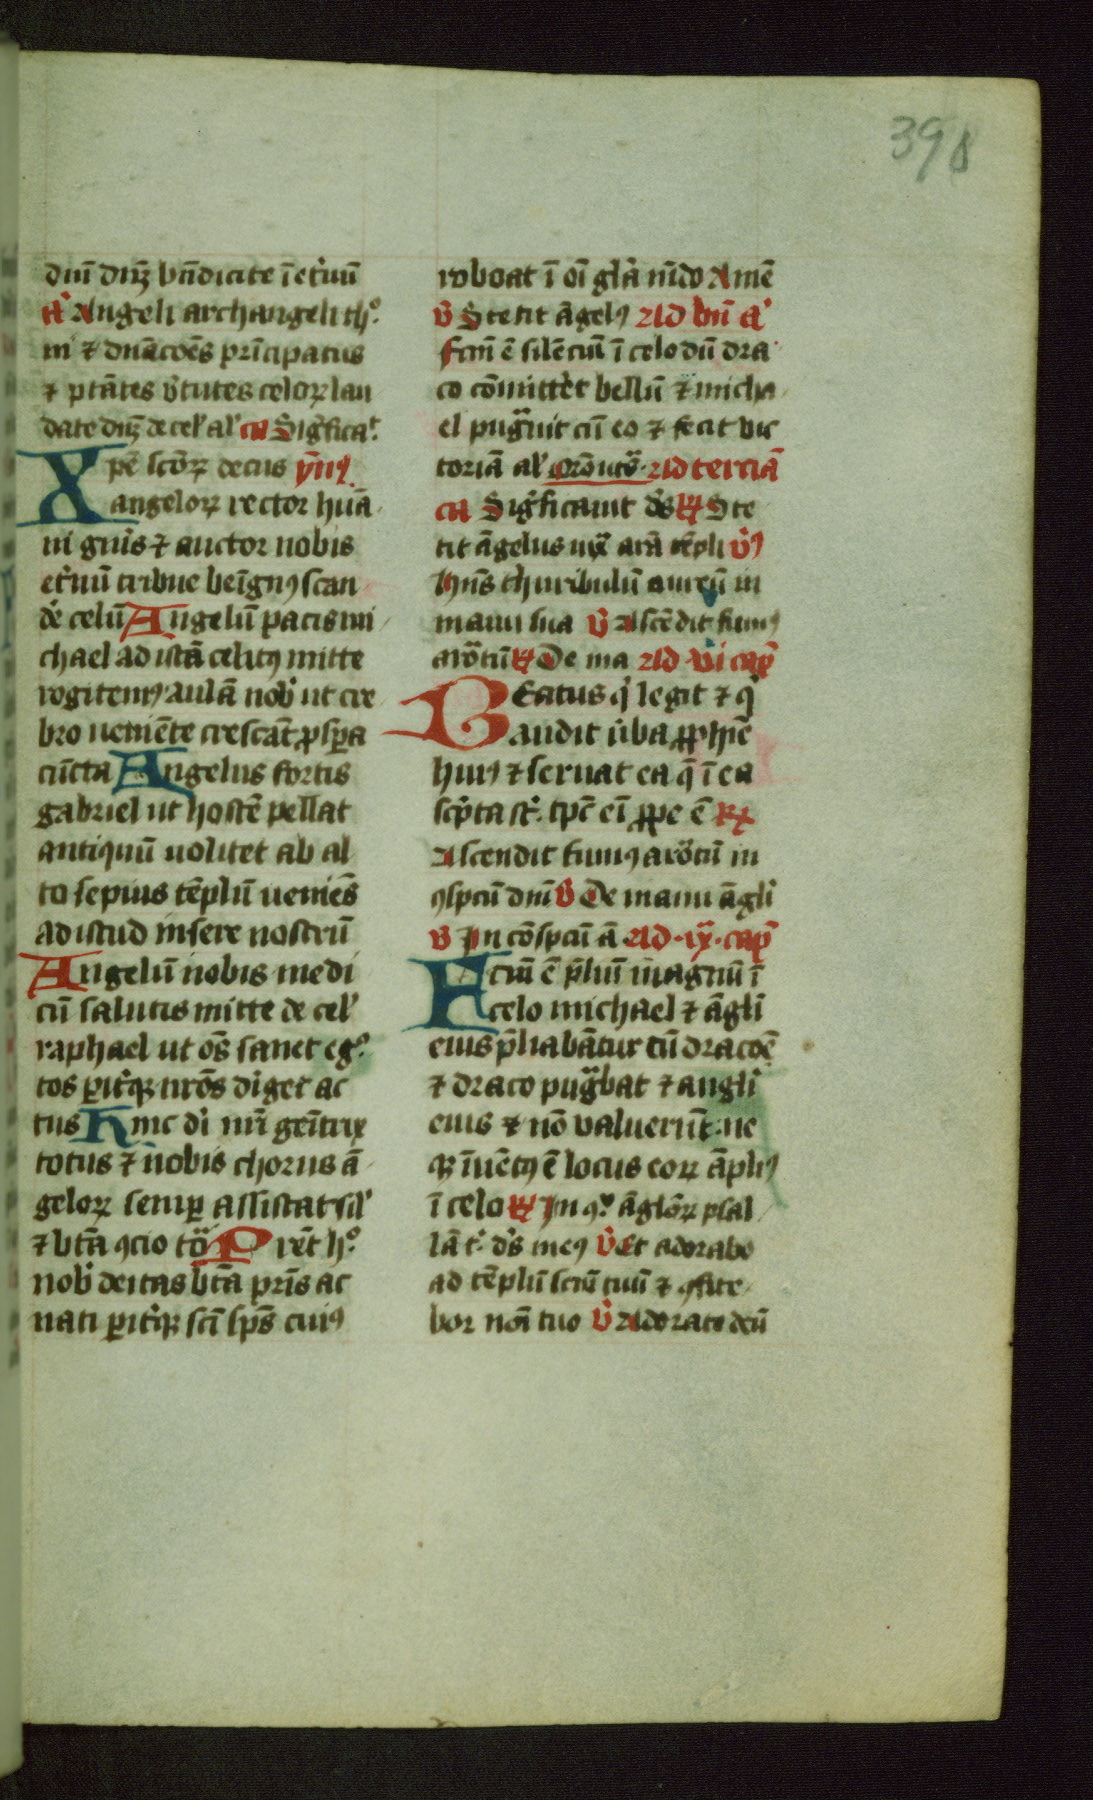 398
dnm̄ dn̄ꝫ bn̄dicite ī et̓nū
a᷑ Angeli archangeli th͛o
ni ⁊ dn̄acōēs prīcipatus
⁊ p̱tātes v̓tutes celoꝝ lau
date dn̄ꝫ de cel̓ al̓ ca Sig̓fica
Xpē sctōꝝ decus ym̄ꝰ
angeloꝝ rector huā
ni gn̄is ⁊ auctor nobis
et̓nū tribue benīgnꝰ scan
de̓ celū Angelū pacis mi
chael ad istā celitꝰ mitte
rogitemꝰ aulā nob̓ ut cre
bro veniēte crescāt ꝓsp̱a
cūcta Angelus fortis
gabriel ut hostē pellat
antiquū volitet ab al
to sepius tēplū veniēs
ad istud insere nostrū
Angelū nobis medi
cū salutis mitte de cel̓
raphael ut oēs sanet eg̊
tos p̱it̓qꝫ nr̄os di̓get ac
tus Hinc di̓ nr̄i genītrix
totus ⁊ nobis chorus ā
geloꝝ semp̱ assistat sil̓
⁊ bt̄a ꝯcio tō Prēt h̊
nob̓ deitas bt̄a pr̄is ac
nati p̱it̓qꝫ sc̄i sp̄s cuiꝰ
roboat ī oī gl̄a mūdo Amē
v̓ Stetit āgelꝰ Ad bn̄ a᷑
Fcm̄ ē silēciū ī celo dū dra
co cōmitte̓t bellū ⁊ micha
el pug̓uit cū eo ⁊ fecit vic
toriā al̓ Ad terciā
ca Sig̓ficauit dn̄s ℟ Ste
tit āgelus iux̄ arā tēpli v̓ꝰ
hn̄s thuribulū aureū in
manu sua v̓ Ascēdit fumꝰ
arōtū ℟ De ma Ad vi cap̄
Beatus q̓ legit ⁊ q̓
audit v̓ba ꝓphīe
huiꝰ ⁊ seruat ea q̄ ī ea
scp̓ta st̓ tp̄c eī ꝓpe ē ℟
Ascendit fumꝰ arōtū in
ꝯspcū dnī v̓ De manu āgli
v̓ In cōspcū ā Ad ix cap̄
Fctū ē p̄liū magnū ī
celo michael ⁊ āgli
eius p̄liabātur cū dracōē
⁊ draco pug̓bat ⁊ angli
eius ⁊ nō valuerūt ne
qꝫ īuētꝰ ē locus eoꝝ āpliꝰ
ī celo ℟ In ꝯ āgloꝝ psal
lā t̓ ds̄ meꝰ v̓ Et adorabo
ad tēplū sctū tuū ⁊ ꝯfite
bor noī tuo v̓ Adorate deū